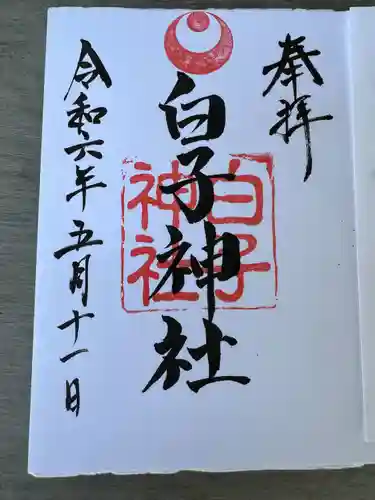 奉拝
白子神社
白子
神社
令和六年五月十一日